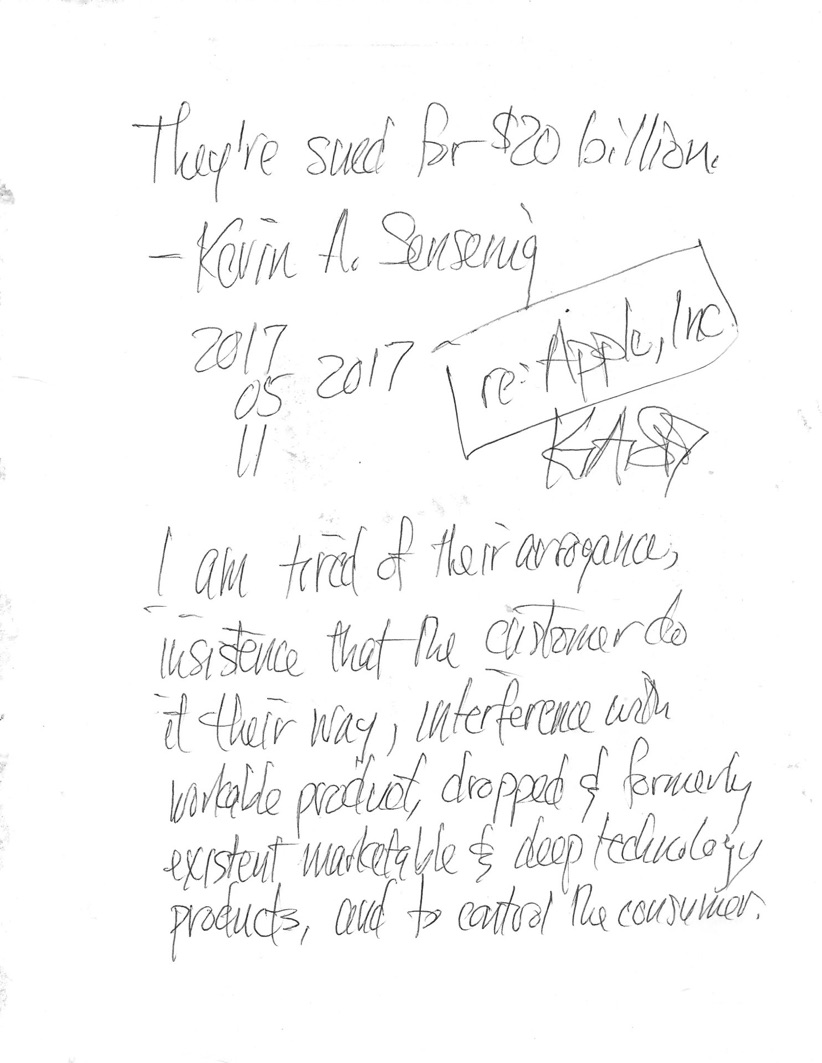 They're sued for $20 billion.
- Kevin A. Sensenig
2017
05 2017
11
re: Apple, Inc.
KAS
I am tired of their arrogance,
insistence that the customer do
it their way, interference with
workable product, dropped & formerly
existent marketable & deep technology
products, and to control the consumer.